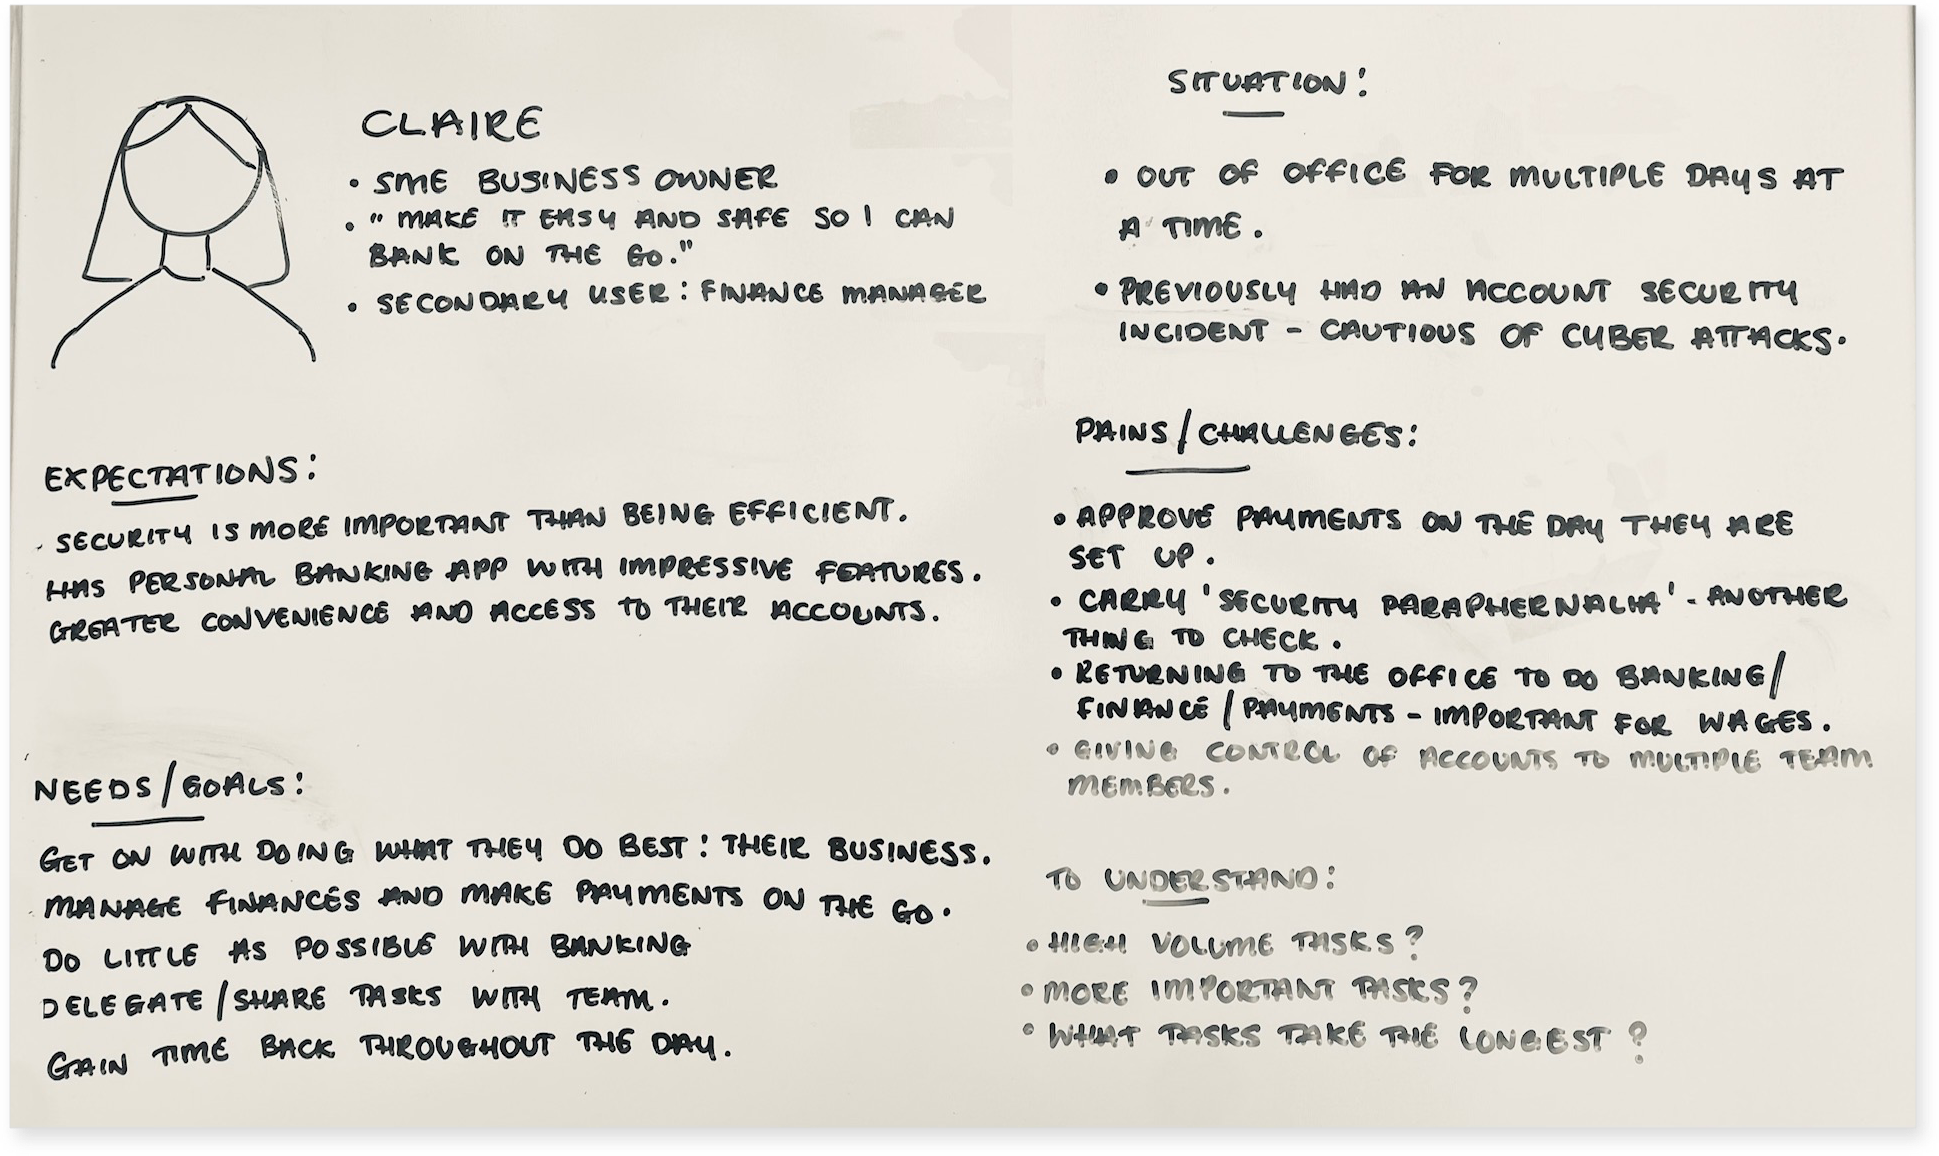 CLAIRE
• SME BUSINESS OWNER
• "MAKE IT EASY AND SAFE SO I CAN
BANK ON THE GO."
• SECONDARY USER: FINANCE MANAGER
EXPECTATIONS:
. SECURITY IS MORE IMPORTANT THAN BEING EFFICIENT.
HAS PERSONAL BANKING APP WITH IMPRESSIVE FEATURES.
GREATER CONVENIENCE AND ACCESS TO THEIR ACCOUNTS.
NEEDS/GOALS:
GET ON WITH DOING WHAT THEY DO BEST: THEIR BUSINESS.
MANAGE FINANCES AND MAKE PAYMENTS ON THE GO.
DO LITTLE AS POSSIBLE WITH BANKING
DELEGATE/SHARE TASKS WITH TEAM.
GAIN TIME BACK THROUGHOUT THE DAY.
SITUATION:
• OUT OF OFFICE FOR MULTIPLE DAYS AT
A TIME.
• PREVIOUSLY HAD AN ACCOUNT SECURITY
INCIDENT - CAUTIOUS OF CYBER ATTACKS.
PAINS/CHALLENGES:
• APPROVE PAYMENTS ON THE DAY THEY ARE
SET UP.
• CARRY 'SECURITY PARAPHERNALIA' - ANOTHER
THING TO CHECK.
• RETURNING TO THE OFFICE TO DO BANKING/
FINANCE/PAYMENTS - IMPORTANT FOR WAGES.
• GIVING CONTROL OF ACCOUNTS TO MULTIPLE TEAM
MEMBERS.
TO UNDERSTAND:
• HIGH VOLUME TASKS?
• MORE IMPORTANT TASKS?
• WHAT TASKS TAKE THE LONGEST?